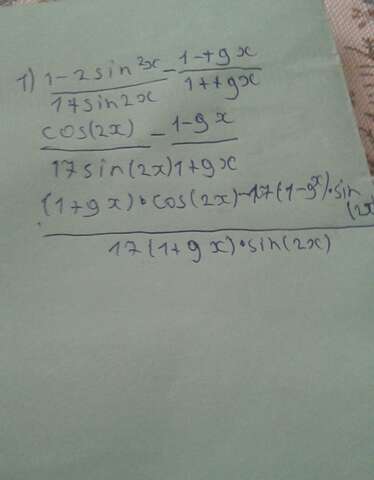 1) 1-2sin²x/17sin2x - 1-tgx/1+tgx
cos(2x)/17sin(2x) - 1-gx/1+gx
(1+gx)•cos(2x)-17(1-gx)•sin(2x)/17(1+gx)•sin(2x)